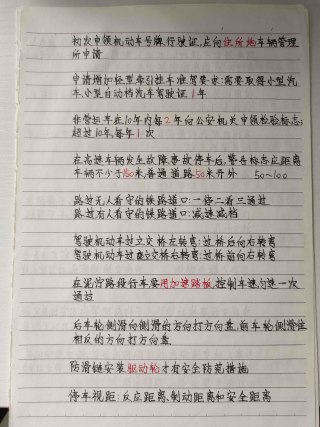 初次申领机动车号牌,行驶证,应向住所地车辆管理
所申请
申请增加轻型牵引挂车准驾要求:需要取得小型汽
车,小型自动档汽车驾驶证1年
非营运车在10年内每2年向公安机关申领检验标志;
超过10年,每年1次
在高速车辆发生故障事故停车后,警告标志应距离
车辆不少于150米,普通道路50米开外 50~100
路过无人看守的铁路道口:一停二看三通过
路过有人看守的铁路道口:减速减档
驾驶机动车过立交桥左转弯:过桥后向右转弯
驾驶机动车过立交桥右转弯:过桥前向右转弯
在泥泞路段行车要用加速踏板,控制车速匀速一次
通过
后车轮侧滑向侧滑的方向打方向盘,前车轮侧滑往
相反的方向打方向盘
防滑链安装驱动轮才有安全防范措施
停车视距:反应距离、制动距离和安全距离